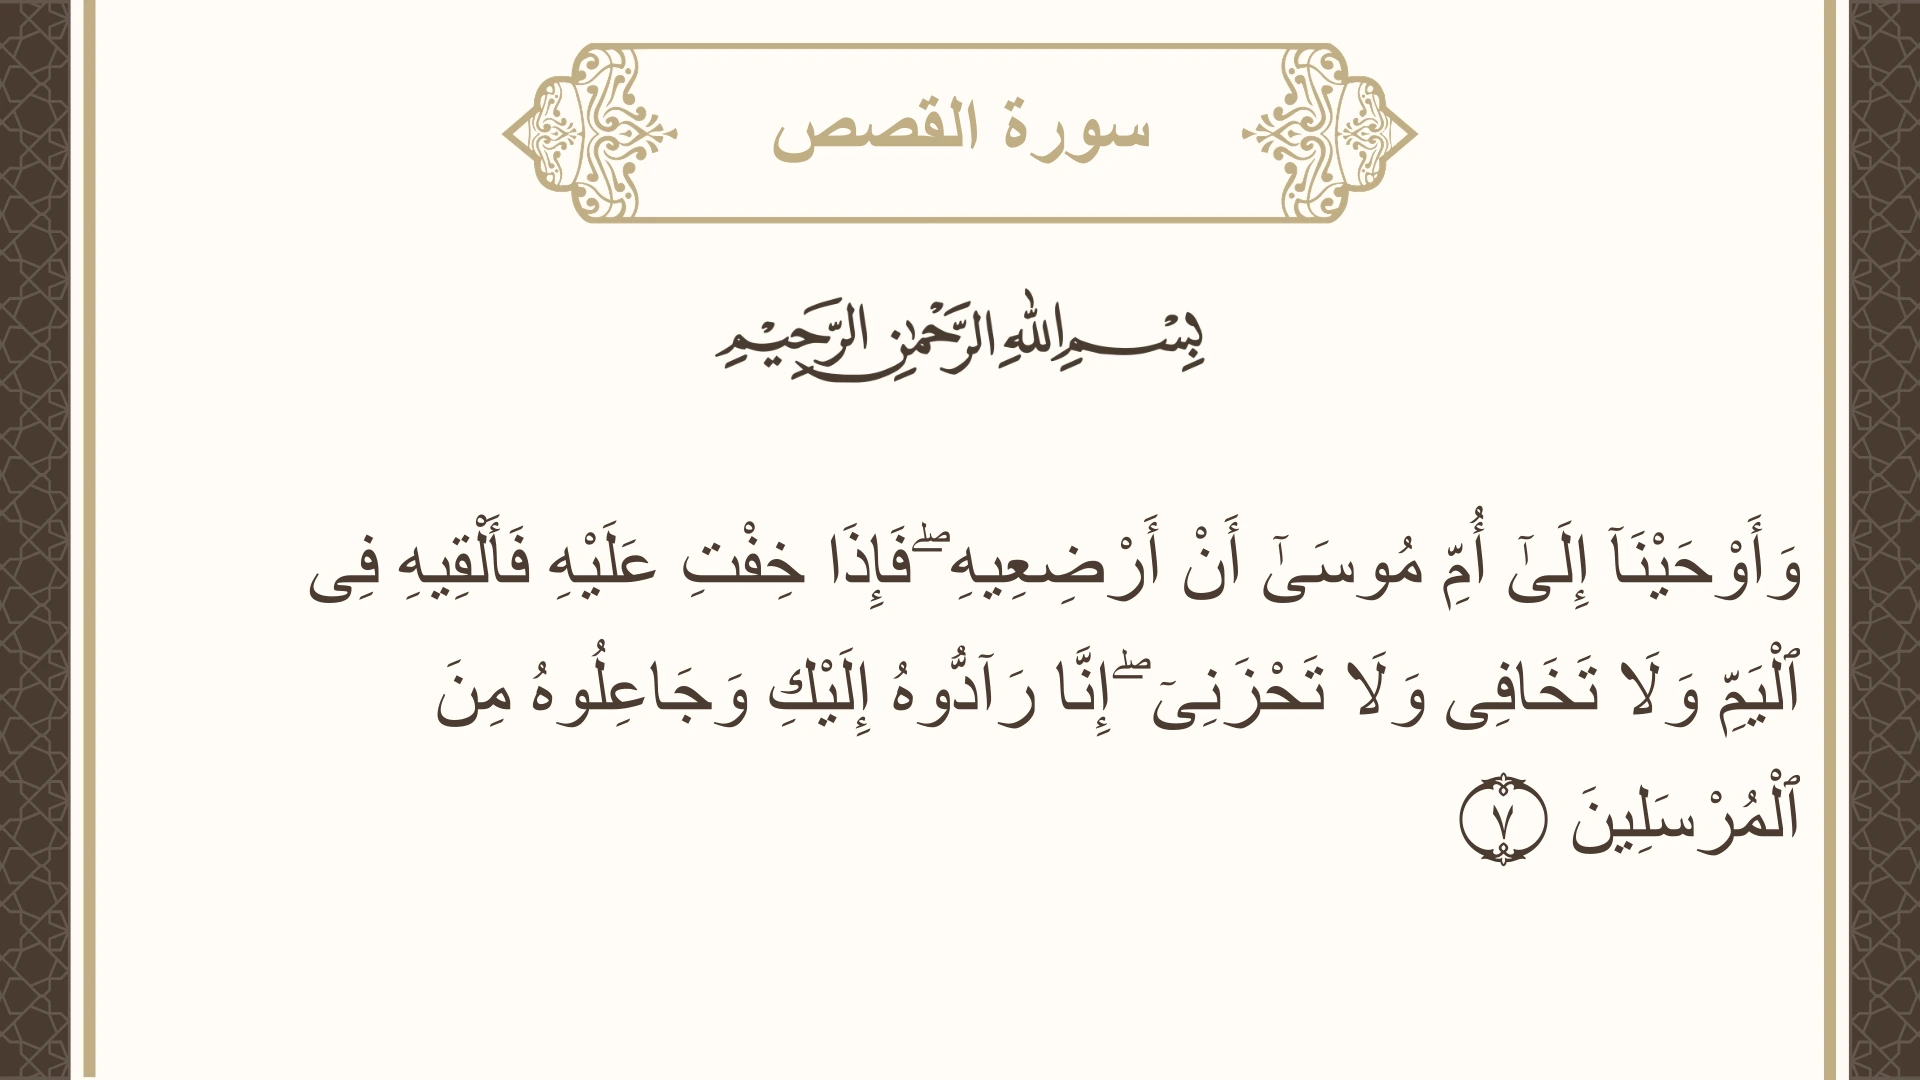 سورة القصص
بِسْمِ اللهِ الرَّحْمٰنِ الرَّحِيْمِ
وَأَوْحَيْنَآ إِلَىٰٓ أُمِّ مُوسَىٰٓ أَنْ أَرْضِعِيهِ ۖ فَإِذَا خِفْتِ عَلَيْهِ فَأَلْقِيهِ فِى
ٱلْيَمِّ وَلَا تَخَافِى وَلَا تَحْزَنِىٓ ۖ إِنَّا رَآدُّوهُ إِلَيْكِ وَجَاعِلُوهُ مِنَ
ٱلْمُرْسَلِينَ ٧